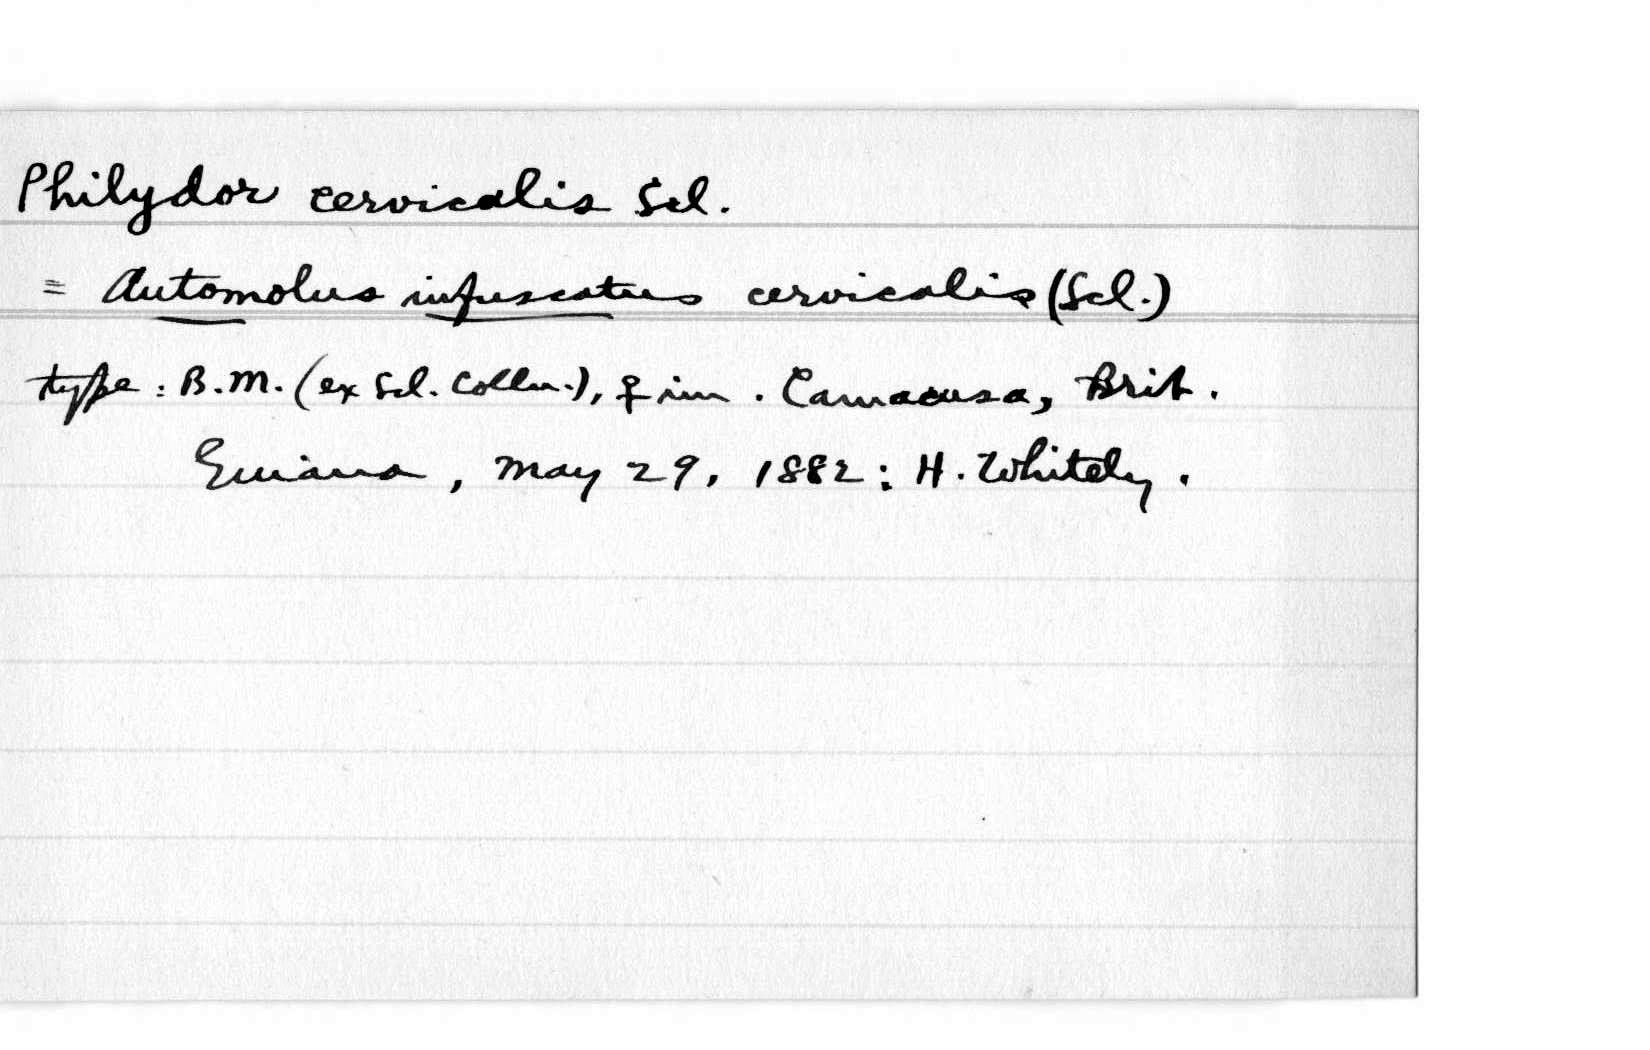 Philydor cervicalis Scl.
= Automolus infuscatus cervicalis (Scl.)
type: B.M. (ex Scl. Colln.), ♀ im. Camacusa, Brit.
Guiana, May 29, 1882: H. Whitely.